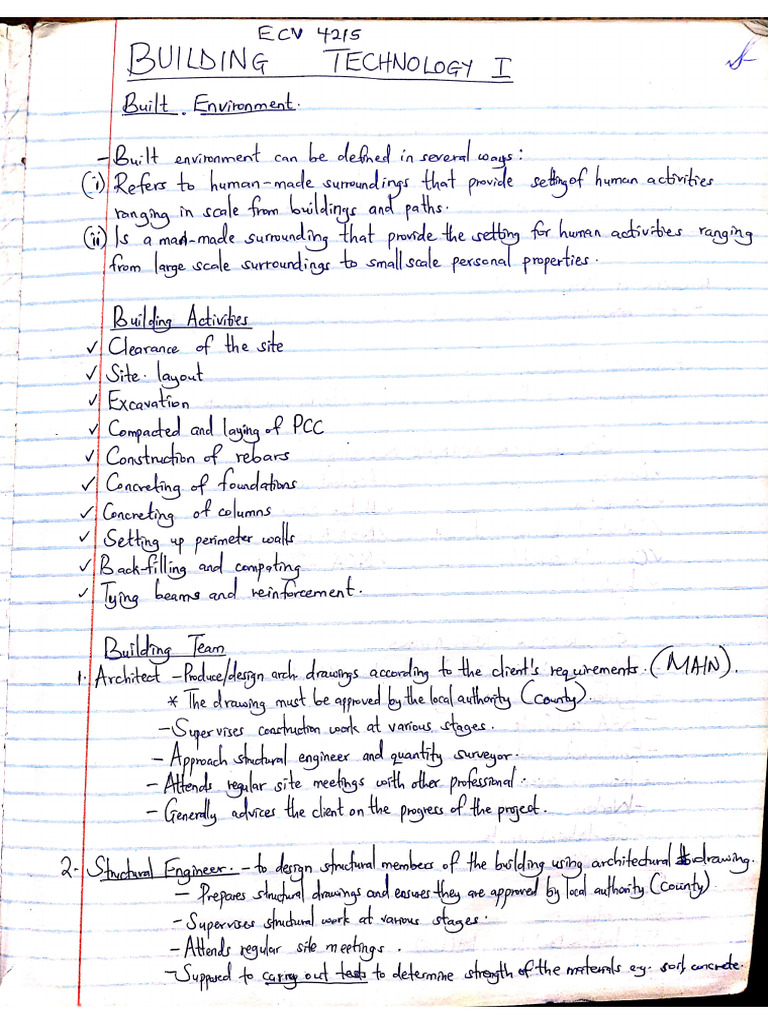 ECV 4215
BUILDING TECHNOLOGY I
Built Environment.
- Built environment can be defined in several ways:
(i) Refers to human-made surroundings that provide setting of human activities
ranging in scale from buildings and paths.
(ii) Is a man-made surrounding that provide the setting for human activities ranging
from large scale surroundings to small scale personal properties.
Building Activities
✓ Clearance of the site
✓ Site layout
✓ Excavation
✓ Compacted and laying of PCC
✓ Construction of rebars
✓ Concreting of foundations
✓ Concreting of columns
✓ Setting up perimeter walls
✓ Back-filling and compating
✓ Tying beams and reinforcement.
Building Team
1. Architect - Produce/design arch drawings according to the client's requirements. (MAIN).
* The drawing must be approved by the local authority (county).
- Supervises construction work at various stages.
- Approach structural engineer and quantity surveyor.
- Attends regular site meetings with other professional.
- Generally advices the client on the progress of the project.
2. Structural Engineer. - to design structural members of the building using architectural drawing.
- Prepares structural drawings and ensures they are approved by local authority (county).
- Supervises structural work at various stages.
- Attends regular site meetings.
- Supposed to carry out tests to determine strength of the materials eg. soil, concrete.